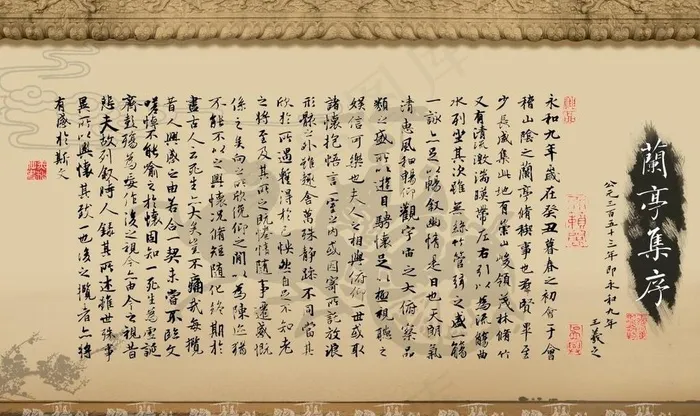 蘭亭集序
公元三百五十三年即永和九年
王羲之
永和九年歲在癸丑暮春之初會于會
稽山陰之蘭亭脩稧事也羣賢畢至
少長咸集此地有崇山峻領茂林脩竹
又有清流激湍暎帶左右引以為流觴曲
水列坐其次雖無絲竹管絃之盛一觴
一詠亦足以暢叙幽情是日也天朗氣
清惠風和暢仰觀宇宙之大俯察品
類之盛所以遊目騁懷足以極視聽之
娛信可樂也夫人之相與俯仰一世或取
諸懷抱悟言一室之內或因寄所託放浪
形骸之外雖趣舍萬殊靜躁不同當其
欣於所遇蹔得於己怏然自足不知老
之將至及其所之既惓情隨事遷感慨
係之矣向之所欣俛仰之閒以為陳迹猶
不能不以之興懷況脩短隨化終期於
盡古人云死生亦大矣豈不痛哉每攬
昔人興感之由若合一契未嘗不臨文
嗟悼不能喻之於懷固知一死生為虛誕
齊彭殤為妄作後之視今亦由今之視昔
悲夫故列叙時人錄其所述雖世殊事
異所以興懷其致一也後之攬者亦將
有感於斯文